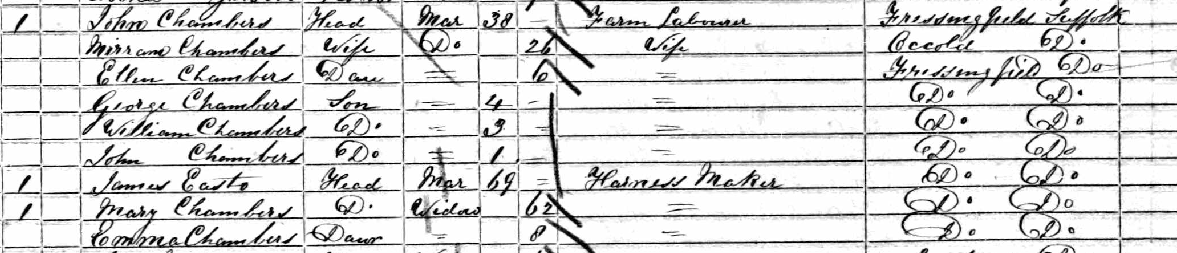 1 John Chambers Head Mar 38 – Farm Labourer Fressingfield Suffolk
Mirram Chambers Wife Do 26 Wife Occold Do
Ellen Chambers Daur = 6 = Fressingfield Do
George Chambers Son = 4 – = Do. Do.
William Chambers Do. = 3 = = Do. Do
John Chambers Do = 1 = Do. Do
1 James Easto Head Mar 69 = Harness Maker Do. Do.
1 Mary Chambers D. Widow 62 = Do. Do.
Emma Chambers Daur = 8 = Do. Do.